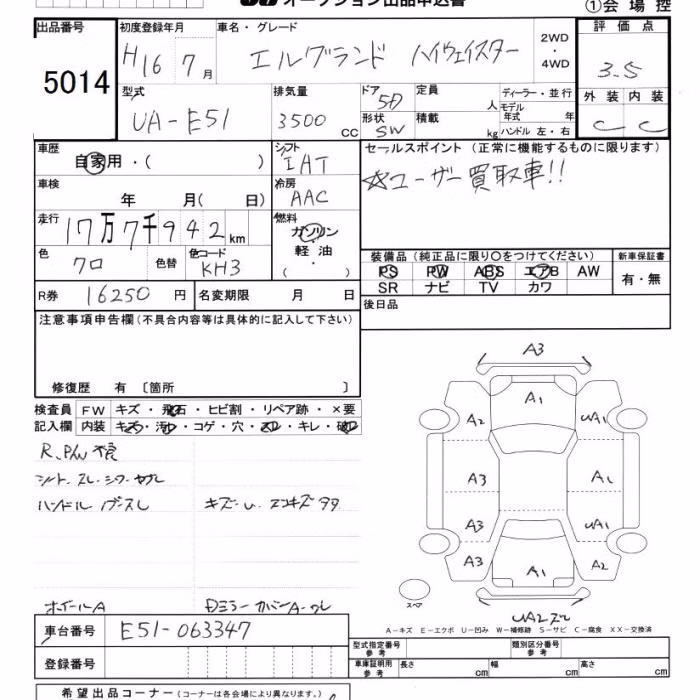 オークション出品申込書
①会場控
出品番号
5014
初度登録年月
H16 7月
車名・グレード
エルグランド ハイウェイスター
2WD
・
4WD
評価点
3.5
外装 内装
C C
型式
UA-E51
排気量
3500 cc
ドア
5D
形状
SW
定員
人
積載
kg
ディーラー・並行
モデル年式 年
ハンドル 左・右
車歴
自家用・( )
シフト
IAT
車検
年 月( 日)
冷房
AAC
走行
17万7千942km
燃料
ガソリン
・
軽油
( ・ )
色
クロ
色替
色コード
KH3
R券
16250円
名変期限 月 日
セールスポイント (正常に機能するものに限ります)
☆ユーザー買取車!!
装備品 (純正品に限り○をつけてください)
新車保証書
PS PW ABS エアB AW
SR ナビ TV カワ
有・無
後日品
注意事項申告欄 (不具合内容等は具体的に記入して下さい)
修復歴 有 〔箇所 〕
検査員記入欄
FW キズ・飛石・ヒビ割・リペア跡・×要
内装 キズ・汚レ・コゲ・穴・スレ・キレ・破レ
シート スレ・シワ・ヤブレ
ハンドル
ホイールA
A3
A1
A2 UA1
A3 A1
A3 UA1
A3 A2
A1
スペア
A-キズ E-エクボ U-凹み W-補修跡 S-サビ C-腐食 XX-交換済
車台番号
E51-063347
登録番号
型式指定番号 参考
類別区分番号 参考
車庫証明用 参考
長さ cm 幅 cm 高さ cm
希望出品コーナー (コーナーは各会場により異なります。)